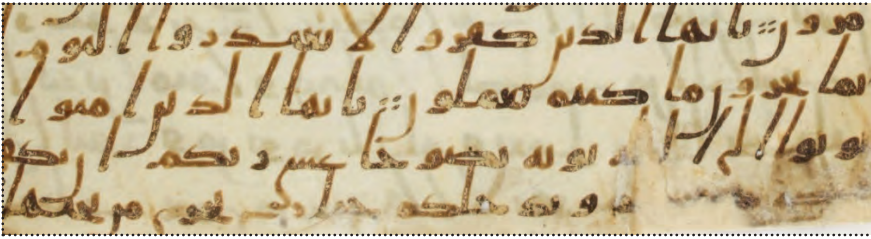 مرون يايها الذين كفروا لا تعتذروا اليوم
انما تجزون ما كنتم تعملون يايها الذين امنوا
توبوا الى الله توبه نصوحا عسى ربكم ان يكفر
ويدخلكم جنت تجري من تحتها